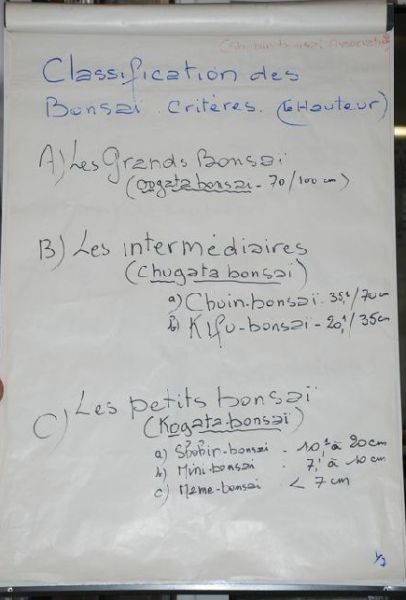 Classification des
Bonsaï Critères. (la Hauteur)
A) Les Grands Bonsaï
(Oogata bonsai - 70/100 cm)
B) Les intermédiaires
(Chugata bonsaï)
a) Chuin-bonsaï - 35,1/70 cm
b) Kifu-bonsaï - 20,1/35 cm
C) Les petits bonsaï
(Kogata-bonsaï)
a) Shohin-bonsai - 10,1 à 20 cm
b) Mini-bonsai : 7,1 à 10 cm
c) Meme-bonsai < 7 cm